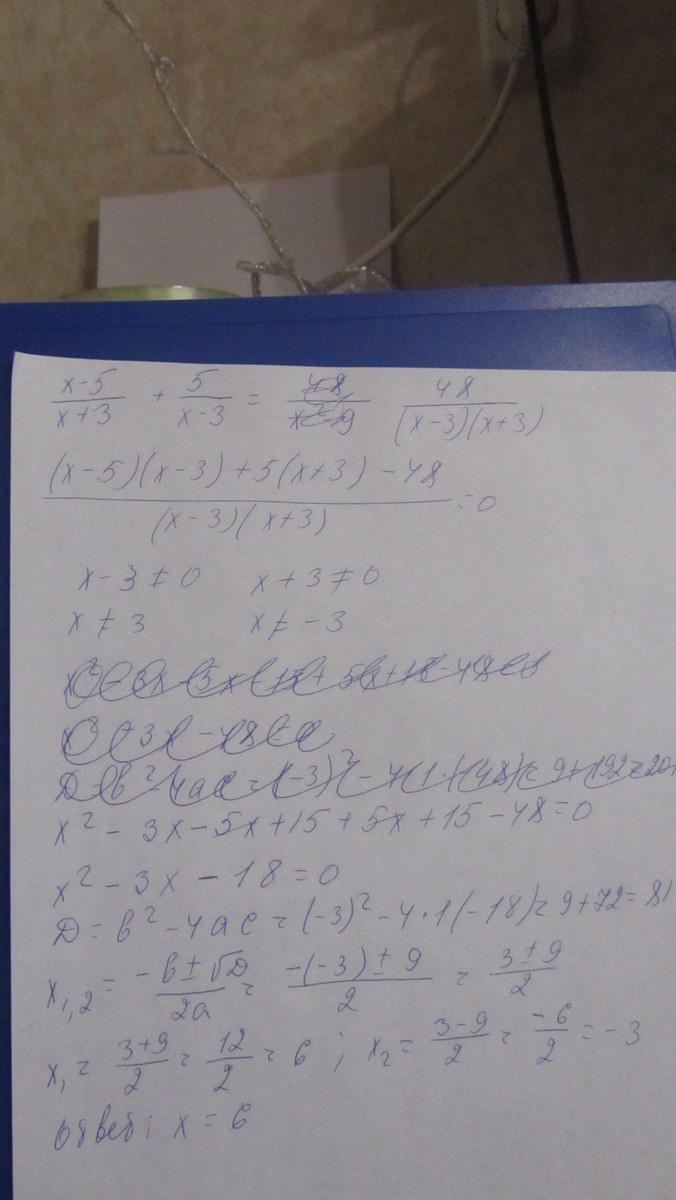 x-5/x+3 + 5/x-3 = 48/(x-3)(x+3)
(x-5)(x-3)+5(x+3)-48/(x-3)(x+3) = 0
x-3≠0 x+3≠0
x≠3 x≠-3
x²-3x-5x+15+5x+15-48=0
x²-3x-18=0
D=b²-4ac=(-3)²-4·1(-18)=9+72=81
x1,2 = -b±√D/2a = -(-3)±9/2 = 3±9/2
x1 = 3+9/2 = 12/2 = 6; x2 = 3-9/2 = -6/2 = -3
Ответ: x=6